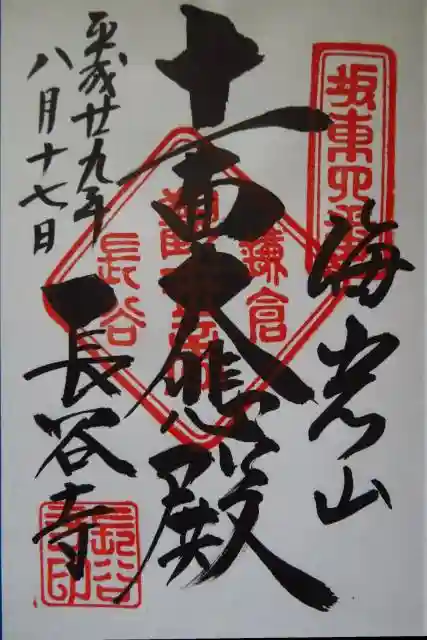 坂東四番
海光山
十一面大悲殿
鎌倉
長谷
長谷寺
平成廿九年
八月十七日
長谷